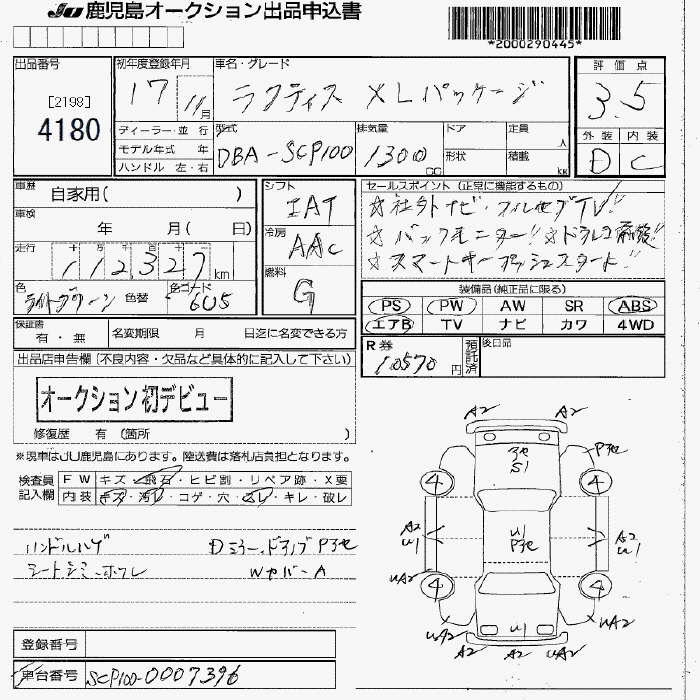 JU 鹿児島オークション出品申込書
*2000290445*
出品番号
[2198]
4180
初年度登録年月
17 11月
車名・グレード
ラクティス XLパッケージ
評価点
3.5
外装 内装
D C
ディーラー・並 行
モデル年式 年
ハンドル 左・右
型式
DBA-SCP100
排気量
1300 CC
ドア
形状
定員 人
積載 kg
車歴
自家用( )
車検
年 月( 日)
走行
十 万 千 百 十 一
112,327 km
色
ライトグリーン
色替
色コード
6U5
シフト
IAT
冷房
AAC
燃料
G
セールスポイント (正常に機能するもの)
☆社外ナビ・フルセグTV!!
☆バックモニター!!☆ドラレコ前後!!
☆スマートキープッシュスタート!!
装備品(純正品に限る)
PS PW AW SR ABS
エアB TV ナビ カワ 4WD
保証書
有・無
名変期限 月 日迄に名変できる方
R券
10570円
預託済
後日品
出品店申告欄(不良内容・欠品など具体的に記入して下さい)
オークション初デビュー
修復歴 有 (箇所 )
※現車はJU鹿児島にあります。陸送費は落札店負担となります。
検査員
記入欄
FW キズ・飛石・ヒビ割・リペア跡・X要
内装 キズ・汚レ・コゲ・穴・スレ・キレ・破レ
ハンドルハゲ Dミラー、ドアノブ Pヨセ
シートシミ・ホツレ WカバーA
A2 A2
ヨセ
S1
Pヨセ
4 4
A2
U1
U1
Pヨセ
A2
U1
UA2
4 4
UA2 U1 UA2
A2 UA2 A2
登録番号
車台番号 SCP100-0007396